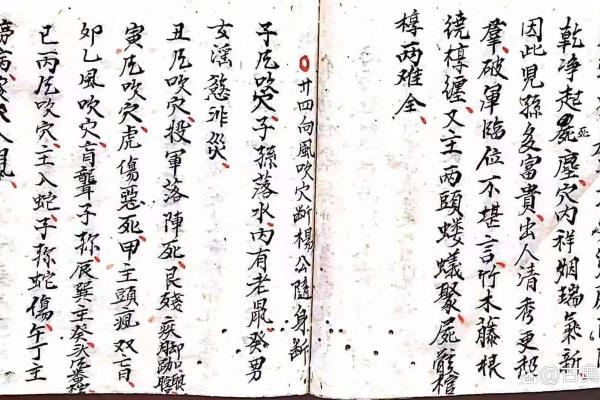 乾净起屍塵穴内祥烟瑞氣新
死
因此兒孫多富貴出人清秀更超
羣破軍臨位不堪言竹木藤根
繞椁纏又主兩頭螻蟻聚屍骸棺
椁两难全
○廿四向風吹穴斷楊公隨身斷
子凡吹穴子孫落水内有老鼠癸男
女淫慾非災
丑凡吹穴投軍落陣死艮殘疾脚跏
寅凡吹穴虎傷惡死甲主頭瘋双盲
卯乙風吹穴盲聾子孫辰巽主癸
巳丙凡吹穴主入蛇子孫蛇傷午丁主
@古典